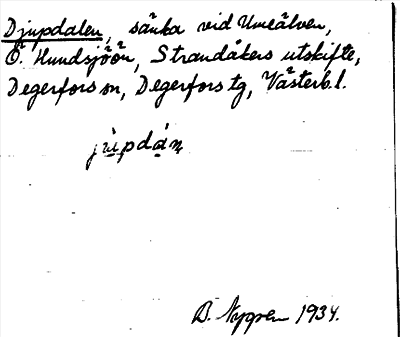 Djupdalen, sänka vid Umeälven,
Ö. Hundsjöön, Strandåkers utskifte,
Degerfors sn, Degerfors tg, Västerb. l.
jùpdán
B. Nygren 1934.